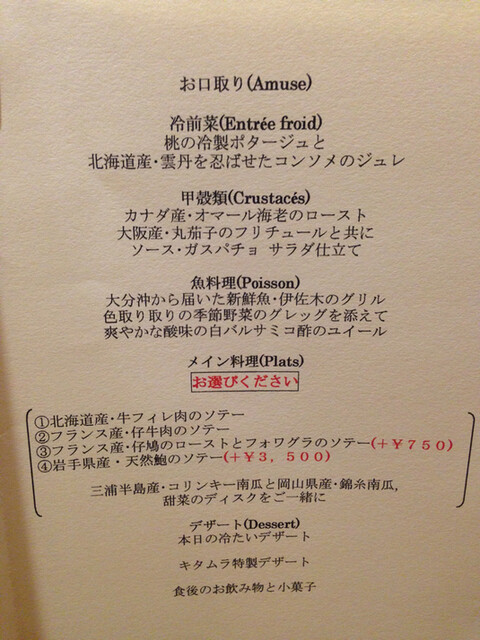 お口取り(Amuse)
冷前菜(Entrée froid)
桃の冷製ポタージュと
北海道産・雲丹を忍ばせたコンソメのジュレ
甲殻類(Crustacés)
カナダ産・オマール海老のロースト
大阪産・丸茄子のフリチュールと共に
ソース・ガスパチョ サラダ仕立て
魚料理(Poisson)
大分沖から届いた新鮮魚・伊佐木のグリル
色取り取りの季節野菜のグレッグを添えて
爽やかな酸味の白バルサミコ酢のユイール
メイン料理(Plats)
お選びください
①北海道産・牛フィレ肉のソテー
②フランス産・仔牛肉のソテー
③フランス産・仔鳩のローストとフォワグラのソテー(+￥750)
④岩手県産・天然鮑のソテー(+￥3,500)
三浦半島産・コリンキー南瓜と岡山県産・錦糸南瓜,
甜菜のディスクをご一緒に
デザート(Dessert)
本日の冷たいデザート
キタムラ特製デザート
食後のお飲み物と小菓子